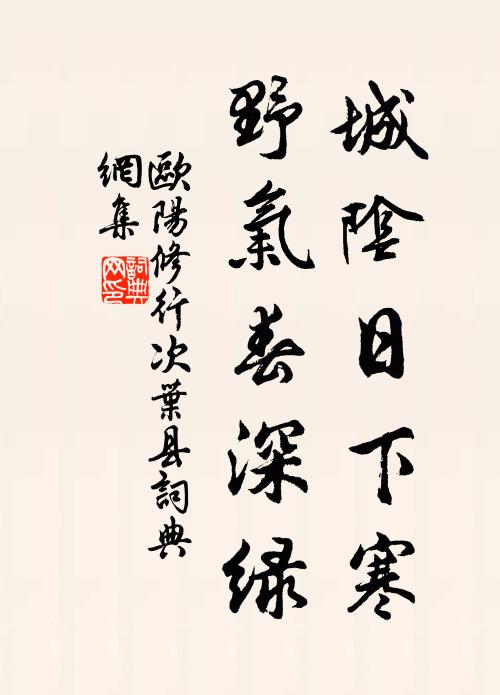 城陰日下寒
野氣春深綠
歐陽修行次葉县詞典
網集
詞典
网印